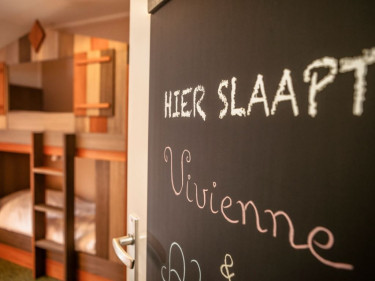 HIER SLAAPT
Vivienne
&